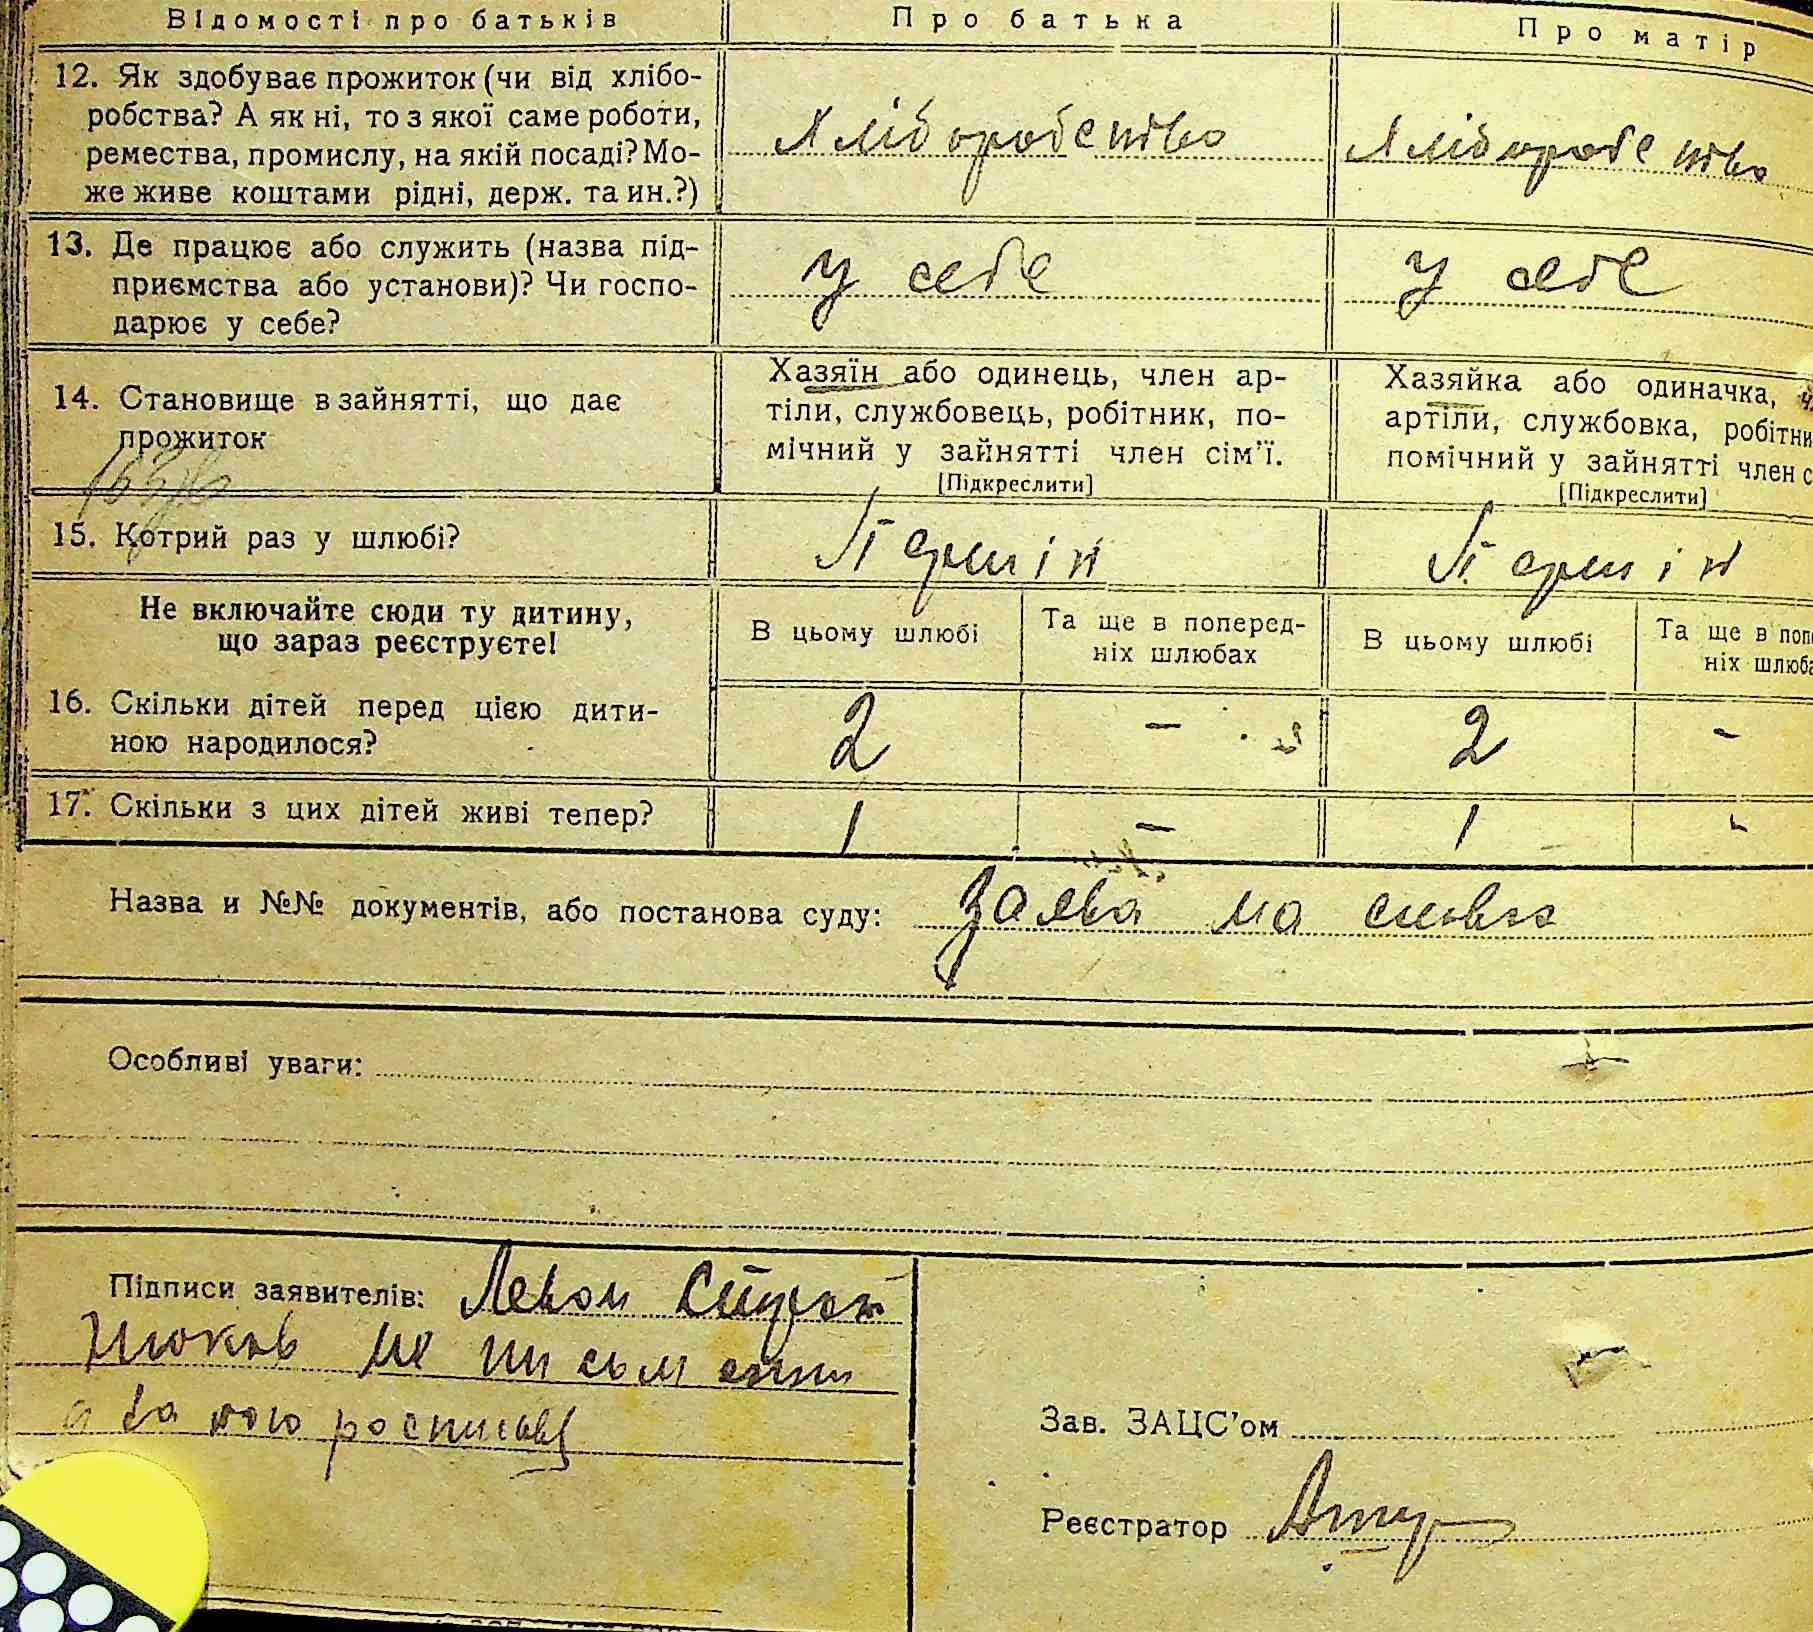 Відомості про батьків Про батька Про матір
12. Як здобуває прожиток (чи від хлібо-
робства? А як ні, то з якої саме роботи,
ремества, промислу, на якій посаді? Мо-
же живе коштами рідні, держ. та ин.?)
Хліборобство Хліборобство
13. Де працює або служить (назва під-
приємства або установи)? Чи госпо-
дарює у себе?
у себе у себе
14. Становище в зайнятті, що дає
прожиток
Хазяїн або одинець, член ар-
тіли, службовець, робітник, по-
мічний у зайнятті член сім'ї.
[Підкреслити]
Хазяйка або одиначка,
артіли, службовка, робітни
помічний у зайнятті член с
[Підкреслити]
15. Котрий раз у шлюбі?
Перший Перший
Не включайте сюди ту дитину,
що зараз реєструєте!
В цьому шлюбі
Та ще в поперед-
ніх шлюбах
В цьому шлюбі
Та ще в попе
ніх шлюба
16. Скільки дітей перед цією дити-
ною народилося?
2 - 2 -
17. Скільки з цих дітей живі тепер?
1 - 1 -
Назва и №№ документів, або постанова суду: Заява на словах
Особливі уваги:
Підписи заявителів: Левон
не письменни
а за його росписавс
Зав. ЗАЦС'ом
Реєстратор